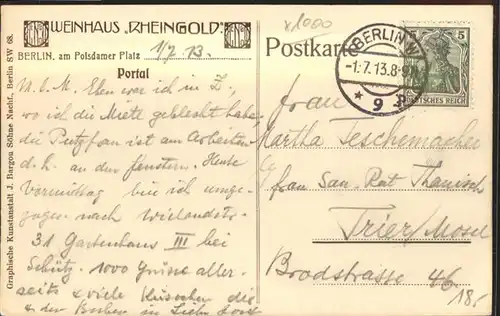 WEINHAUS „RHEINGOLD"
BERLIN. am Potsdamer Platz
1/7 13.
Portal
M. l. M. Eben war ich in Z.,
wo ich die Miete geblecht habe,
die Putzfrau ist am Arbeiten
d. h. an den Fenstern. Heute
Vormittag bin ich umge-
zogen nach Wielandstr.
31 Gartenhaus III bei
Schütz. 1000 Grüsse aller-
seits & viele Küsschen die
& der in Liebe
Graphische Kunstanstalt J. Bargou Söhne Nachf., Berlin SW 68.
x1000
Postkarte
BERLIN W.
-1.7.13.8-9
* 9
5
5
DEUTSCHES REICH
Frau
Martha Teschemacher
Frau San.-Rat Thanisch
Trier/Mosel
Brodstrasse 46
18.-